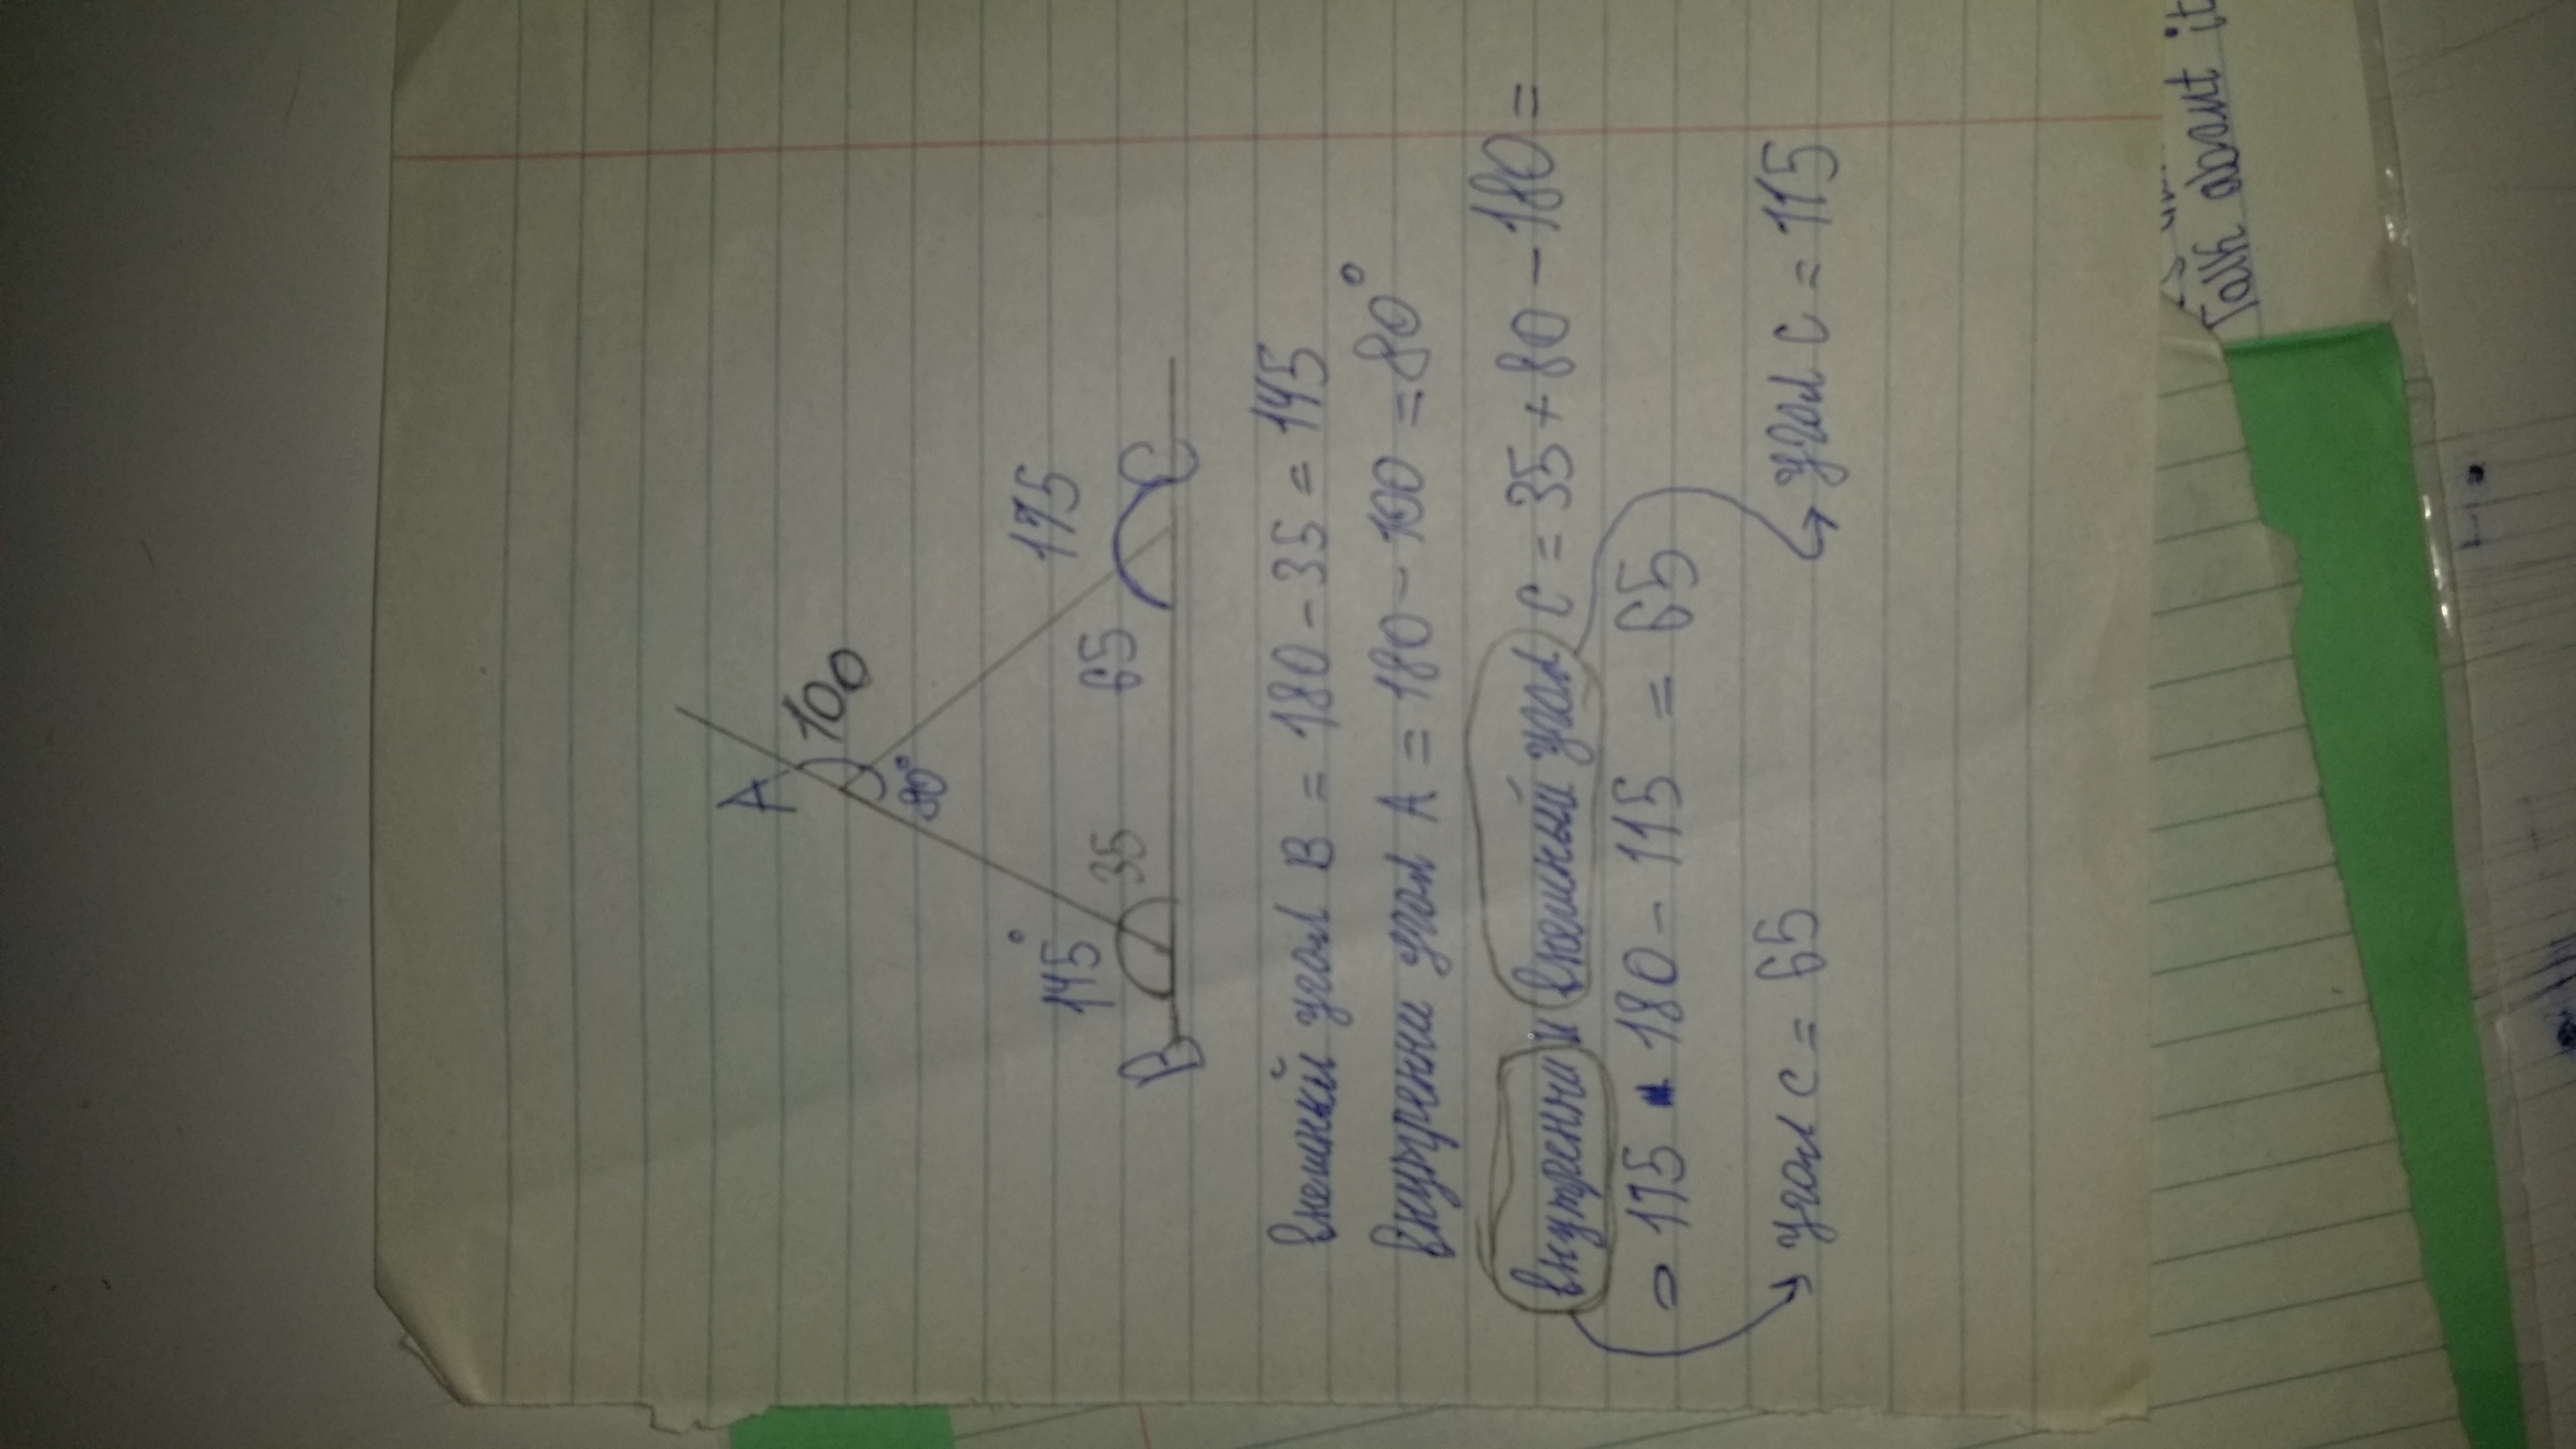 A
100
80°
145°
35
65
115
B
C
внешний угол B = 180 - 35 = 145
внутренни угол A = 180 - 100 = 80°
внутренни и внешный угол C = 35 + 80 - 180 =
= 115 180 - 115 = 65
угол C = 65 угол C = 115
Talk about it